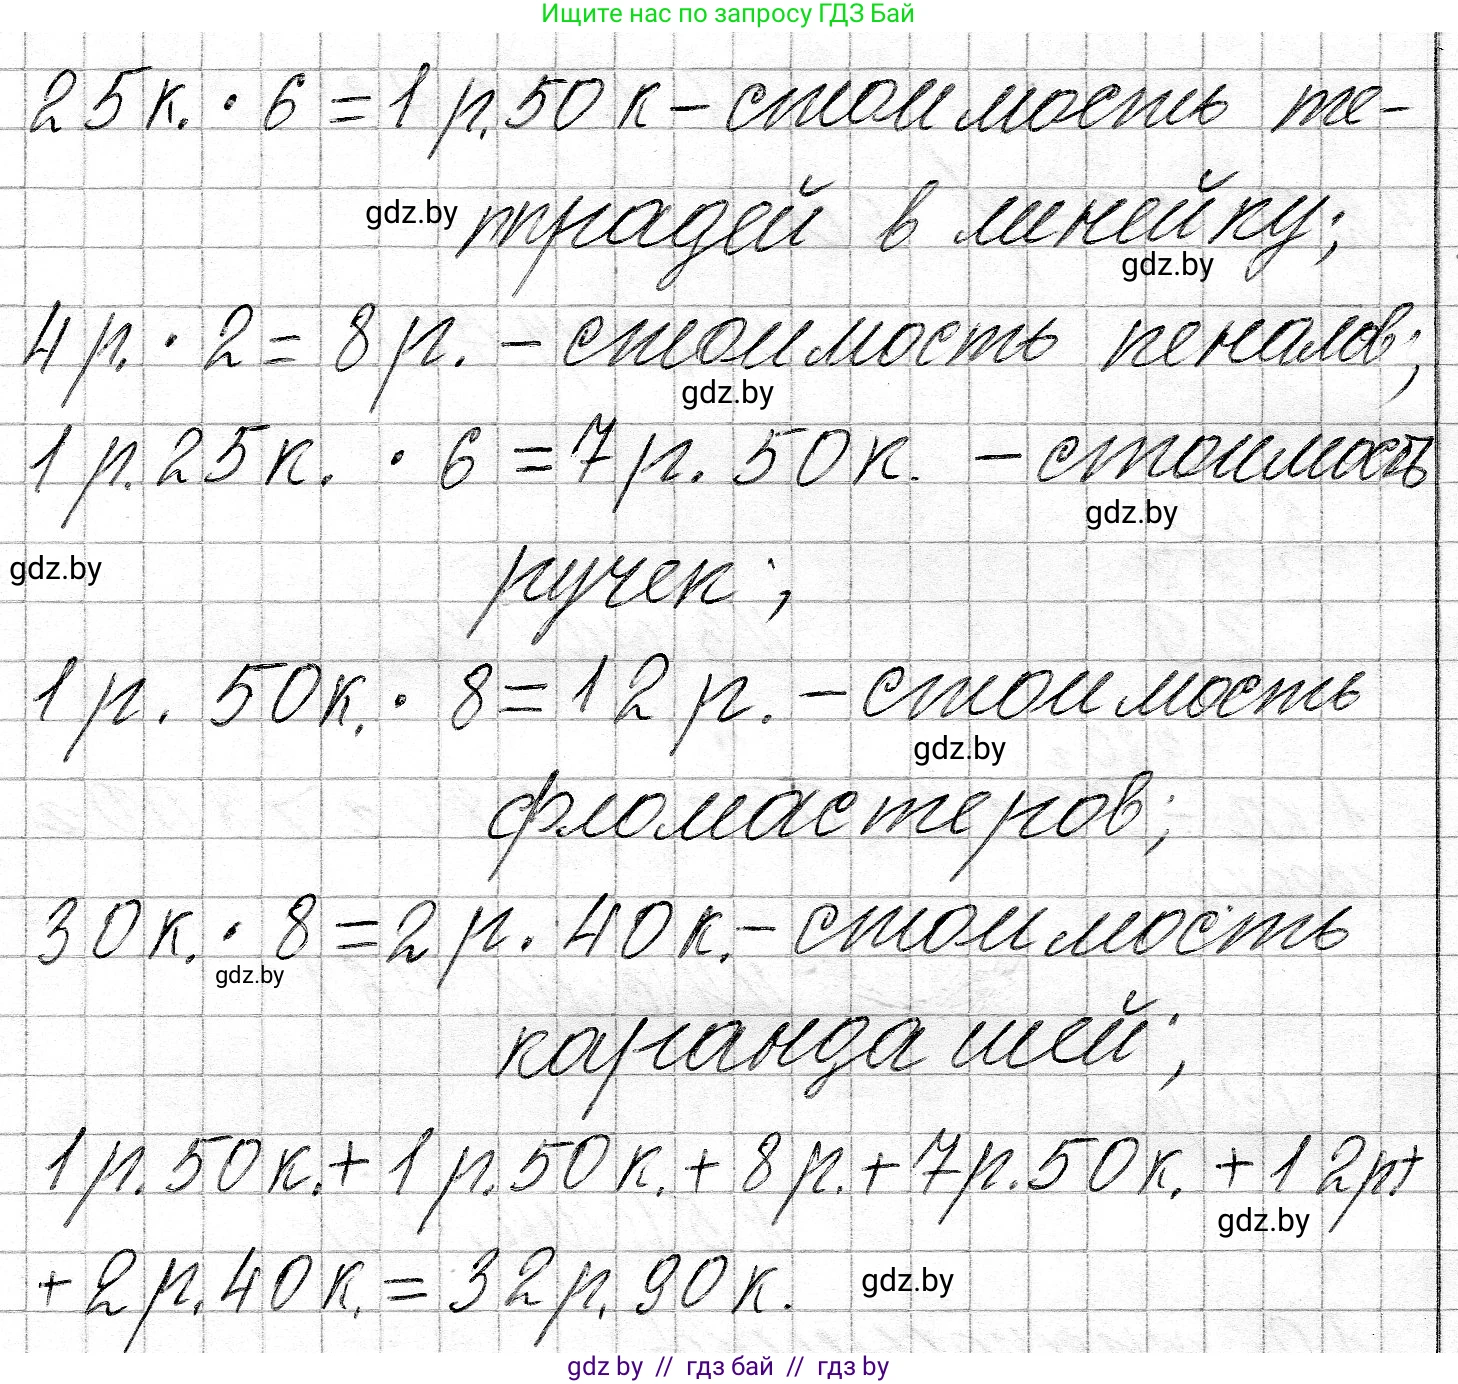 Ищите нас по запросу ГДЗ Бай
25 к. · 6 = 1 р. 50 к – стоимость те-
gdz.by традей в линейку;
gdz.by
4 р. · 2 = 8 р. – стоимость пеналов;
gdz.by
1 р. 25 к. · 6 = 7 р. 50 к. – стоимость
gdz.by
gdz.by ручек;
1 р. 50 к. · 8 = 12 р. – стоимость
gdz.by
фломастеров;
30 к. · 8 = 2 р. 40 к. – стоимость
gdz.by
карандашей;
1 р. 50 к. + 1 р. 50 к. + 8 р. + 7 р. 50 к. + 12 р. +
gdz.by
+ 2 р. 40 к. = 32 р. 90 к. gdz.by
gdz by // гдз бай // гдз by